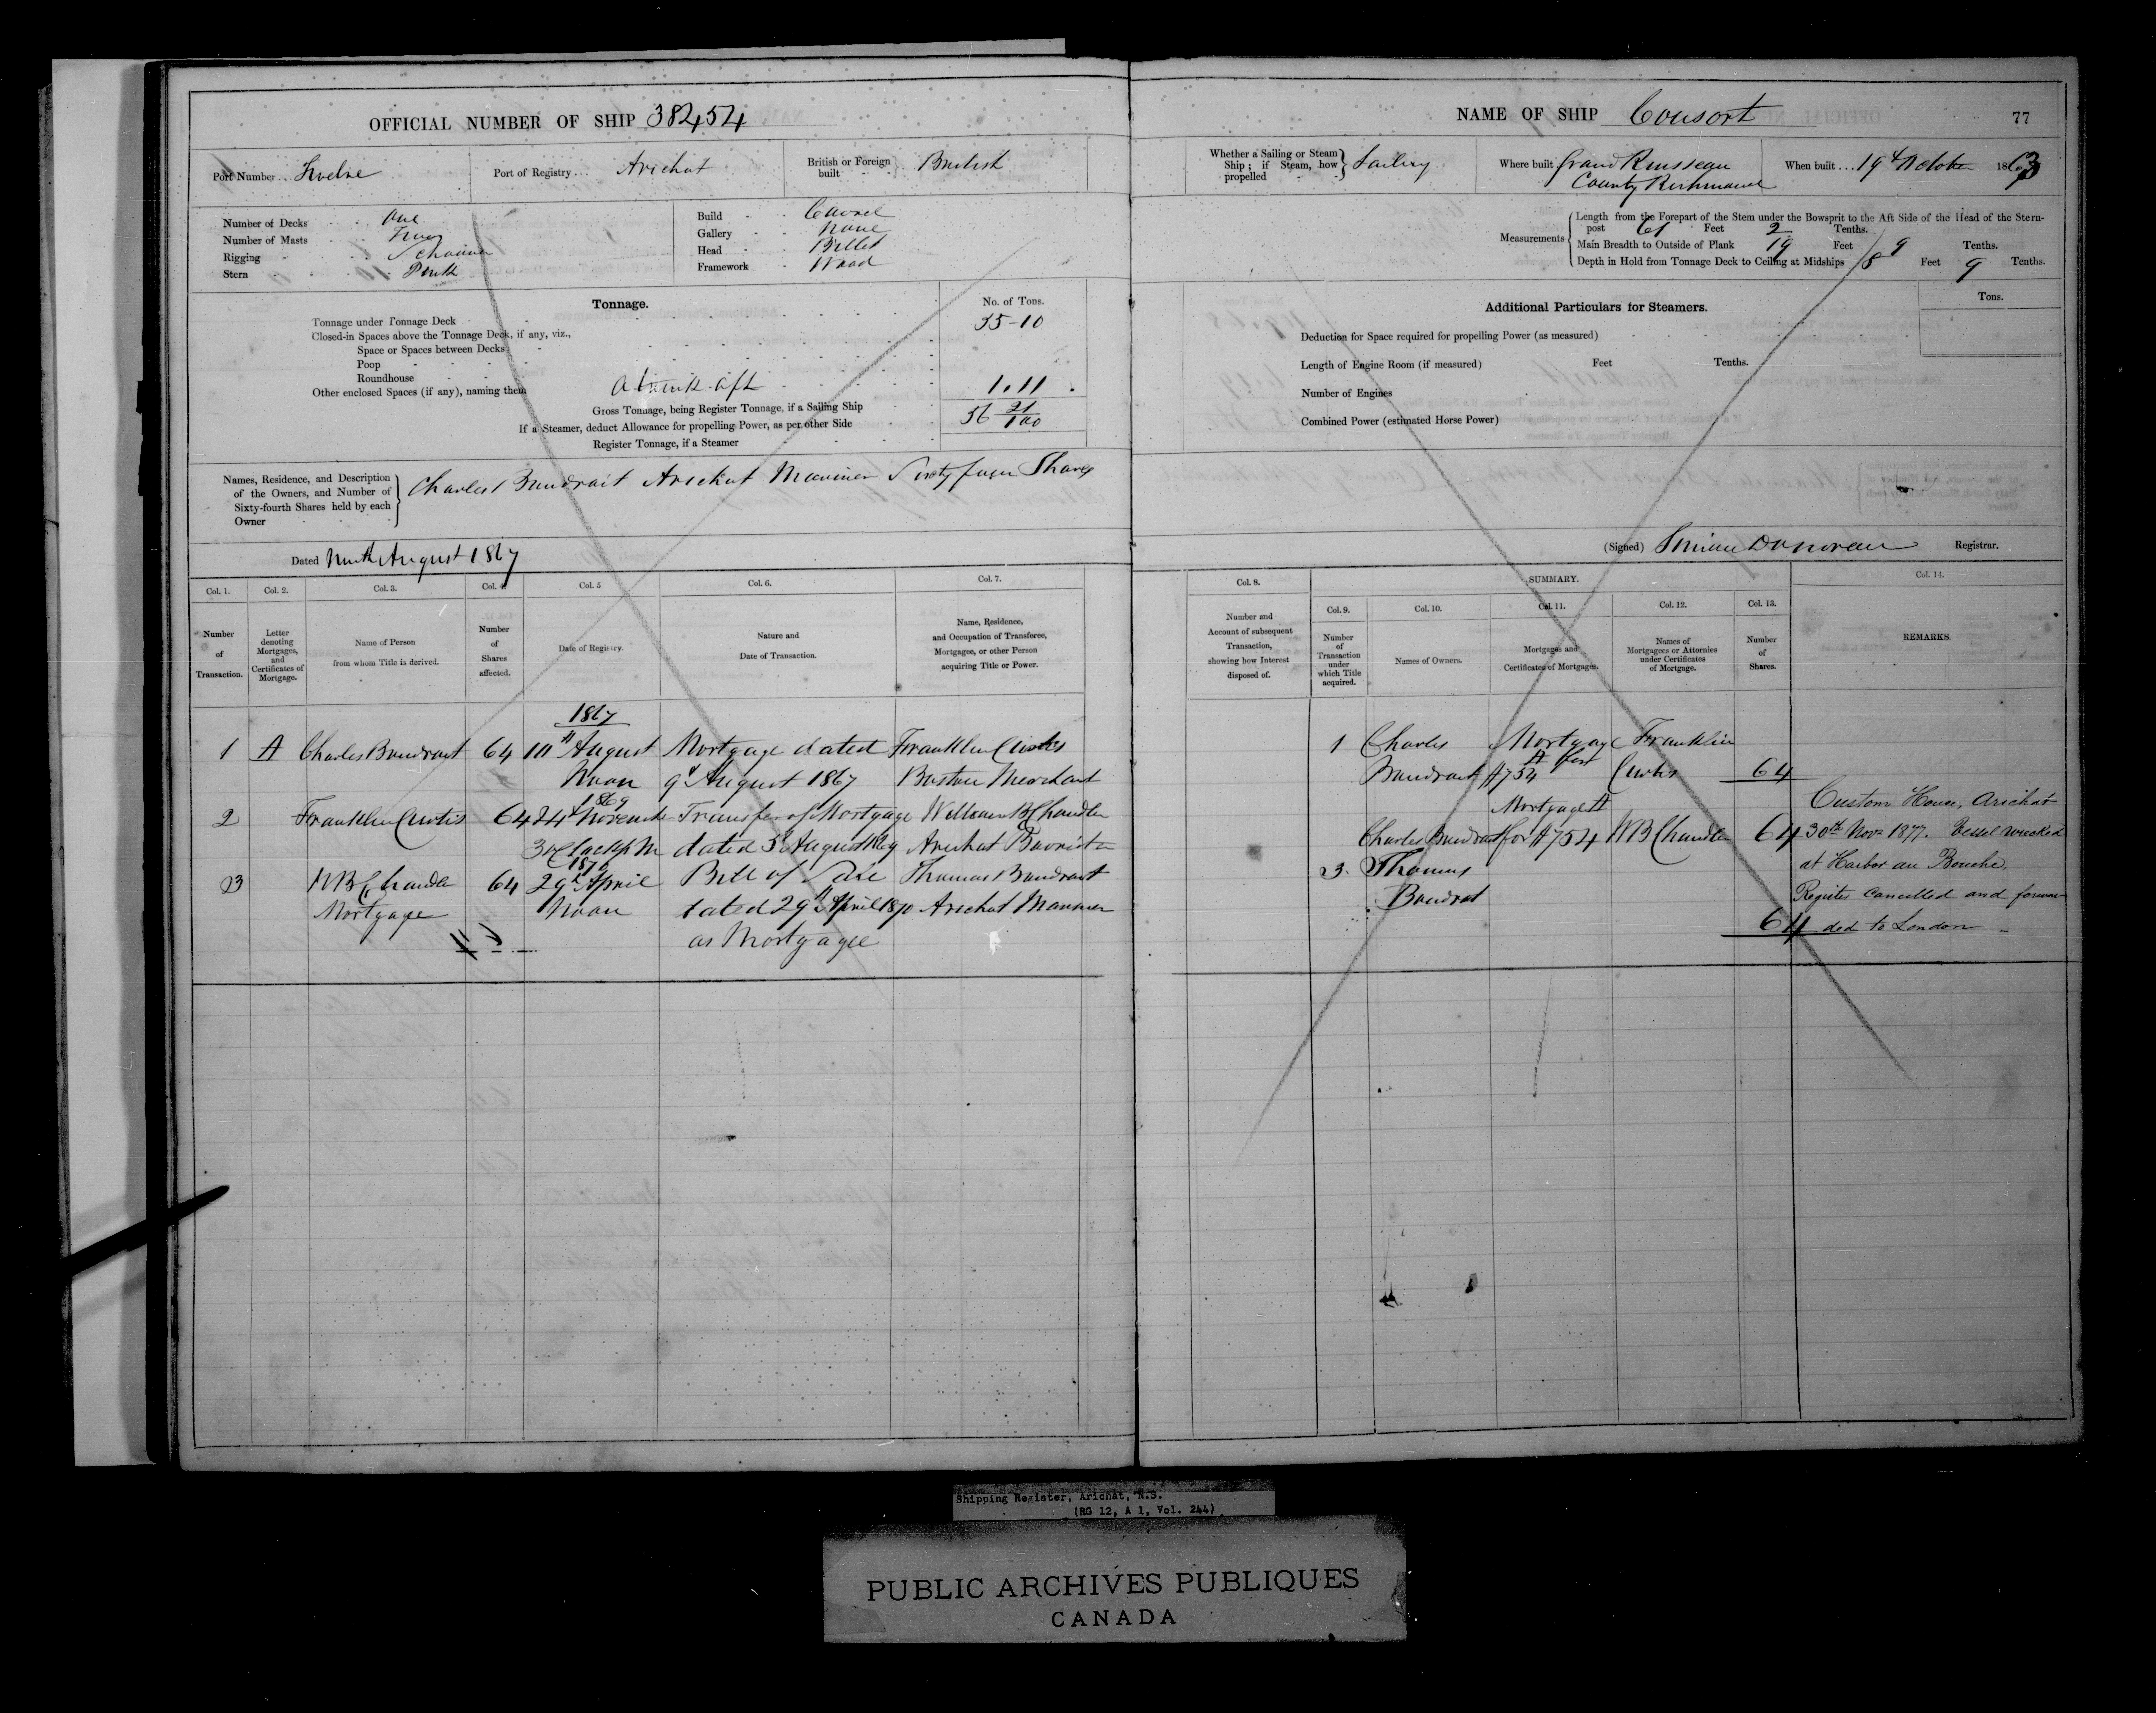 OFFICIAL NUMBER OF SHIP 38454
Port Number ... Twelve
Port of Registry ... Arichat
British or Foreign built } British
Number of Decks One
Number of Masts Two
Rigging Schooner
Stern Pink
Build Carvel
Gallery None
Head Billet
Framework Wood
Tonnage.
No. of Tons.
Tonnage under Tonnage Deck 35-10
Closed-in Spaces above the Tonnage Deck, if any, viz.,
Space or Spaces between Decks
Poop
Roundhouse
Other enclosed Spaces (if any), naming them A trunk aft 1.11
Gross Tonnage, being Register Tonnage, if a Sailing Ship 36 21/100
If a Steamer, deduct Allowance for propelling Power, as per other Side
Register Tonnage, if a Steamer
Names, Residence, and Description of the Owners, and Number of Sixty-fourth Shares held by each Owner } Charles Baudroit Arichat Mariner Sixty four Shares
Dated Ninth August 1867
Col. 1. Col. 2. Col. 3. Col. 4. Col. 5 Col. 6. Col. 7.
Number of Transaction.
Letter denoting Mortgages, and Certificates of Mortgage.
Name of Person from whom Title is derived.
Number of Shares affected.
Date of Registry.
Nature and Date of Transaction.
Name, Residence, and Occupation of Transferee, Mortgagee, or other Person acquiring Title or Power.
1867
1 A Charles Baudroit 64 10th August Mortgage dated Franklin Curtis
Noon 9th August 1867 Boston Merchant
1869
2 Franklin Curtis 64 24th November Transfer of Mortgage William B Chandler
3 O'Clock P.M dated 3d August 1869 Arichat Barrister
1870
3 W B Chandler 64 29th April Bill of Sale Thomas Baudroit
Mortgage Noon dated 29th April 1870 Arichat Mariner
as Mortgagee
NAME OF SHIP Consort
77
Whether a Sailing or Steam Ship; if Steam, how propelled } Sailing
Where built Grand Ruisseau
County Richmond
When built ... 19th October 1863
Measurements
Length from the Forepart of the Stem under the Bowsprit to the Aft Side of the Head of the Stern-
post 61 Feet 2 Tenths.
Main Breadth to Outside of Plank 19 Feet 9 Tenths.
Depth in Hold from Tonnage Deck to Ceiling at Midships 8 Feet 9 Tenths.
Additional Particulars for Steamers.
Tons.
Deduction for Space required for propelling Power (as measured)
Length of Engine Room (if measured) Feet Tenths.
Number of Engines
Combined Power (estimated Horse Power)
(Signed) Donovan Registrar.
Col. 8. SUMMARY. Col. 14.
Col. 9. Col. 10. Col. 11. Col. 12. Col. 13.
Number and Account of subsequent Transaction, showing how Interest disposed of.
Number of Transaction under which Title acquired.
Names of Owners.
Mortgages and Certificates of Mortgages.
Names of Mortgagees or Attornies under Certificates of Mortgage.
Number of Shares.
REMARKS.
1 Charles Mortgage Franklin
Baudroit A for $754 Curtis 64
Mortgage A
Charles Baudroit for $754 W B Chandler 64
3. Thomas
Baudrot
64
Custom House, Arichat
30th Novr 1877. Vessel wrecked
at Harbor au Bouche.
Register cancelled and forwar-
ded to London
Shipping Register, Arichat, N.S.
(RG 12, A 1, Vol. 244)
PUBLIC ARCHIVES PUBLIQUES
CANADA